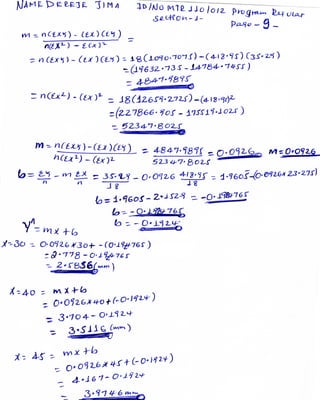 NAME DEREJE JIMA ID/NO MTR 110/012 program Regular
section-1-
page-9-
m = n(Σxy)-(Σx)(Σy) =
n(Σx²)-(Σx)²
= n(Σxy)-(Σx)(Σy) = 18(1090.7075)-(418.95)(35.29)
= (19632.735-14784.7455)
= 4847.9895
= n(Σx²)-(Σx)² = 18(12659.2725)-(418.95)²
= (227866.905-175519.1025)
= 52347.8025
m = n(Σxy)-(Σx)(Σy) = 4847.9895 = 0.0926 m=0.0926
n(Σx²)-(Σx)² 52347.8025
b = Σy/n - m Σx/n = 35.29/18 - 0.0926 418.95/18 = 1.9605-(0.0926x23.275)
b = 1.9605-2.1529 = -0.194765
b = -0.194765
b = -0.1924
y^ = mx+b
x=30 = 0.0926x30+-(0.194765)
= 2.778-0.194765
= 2.5856(mm)
x=40 = mx+b
= 0.0926x40+(-0.1924)
= 3.704-0.1924
= 3.5116(mm)
x= 45 = mx+b
= 0.0926x45+(-0.1924)
= 4.167-0.1924
= 3.9746mm